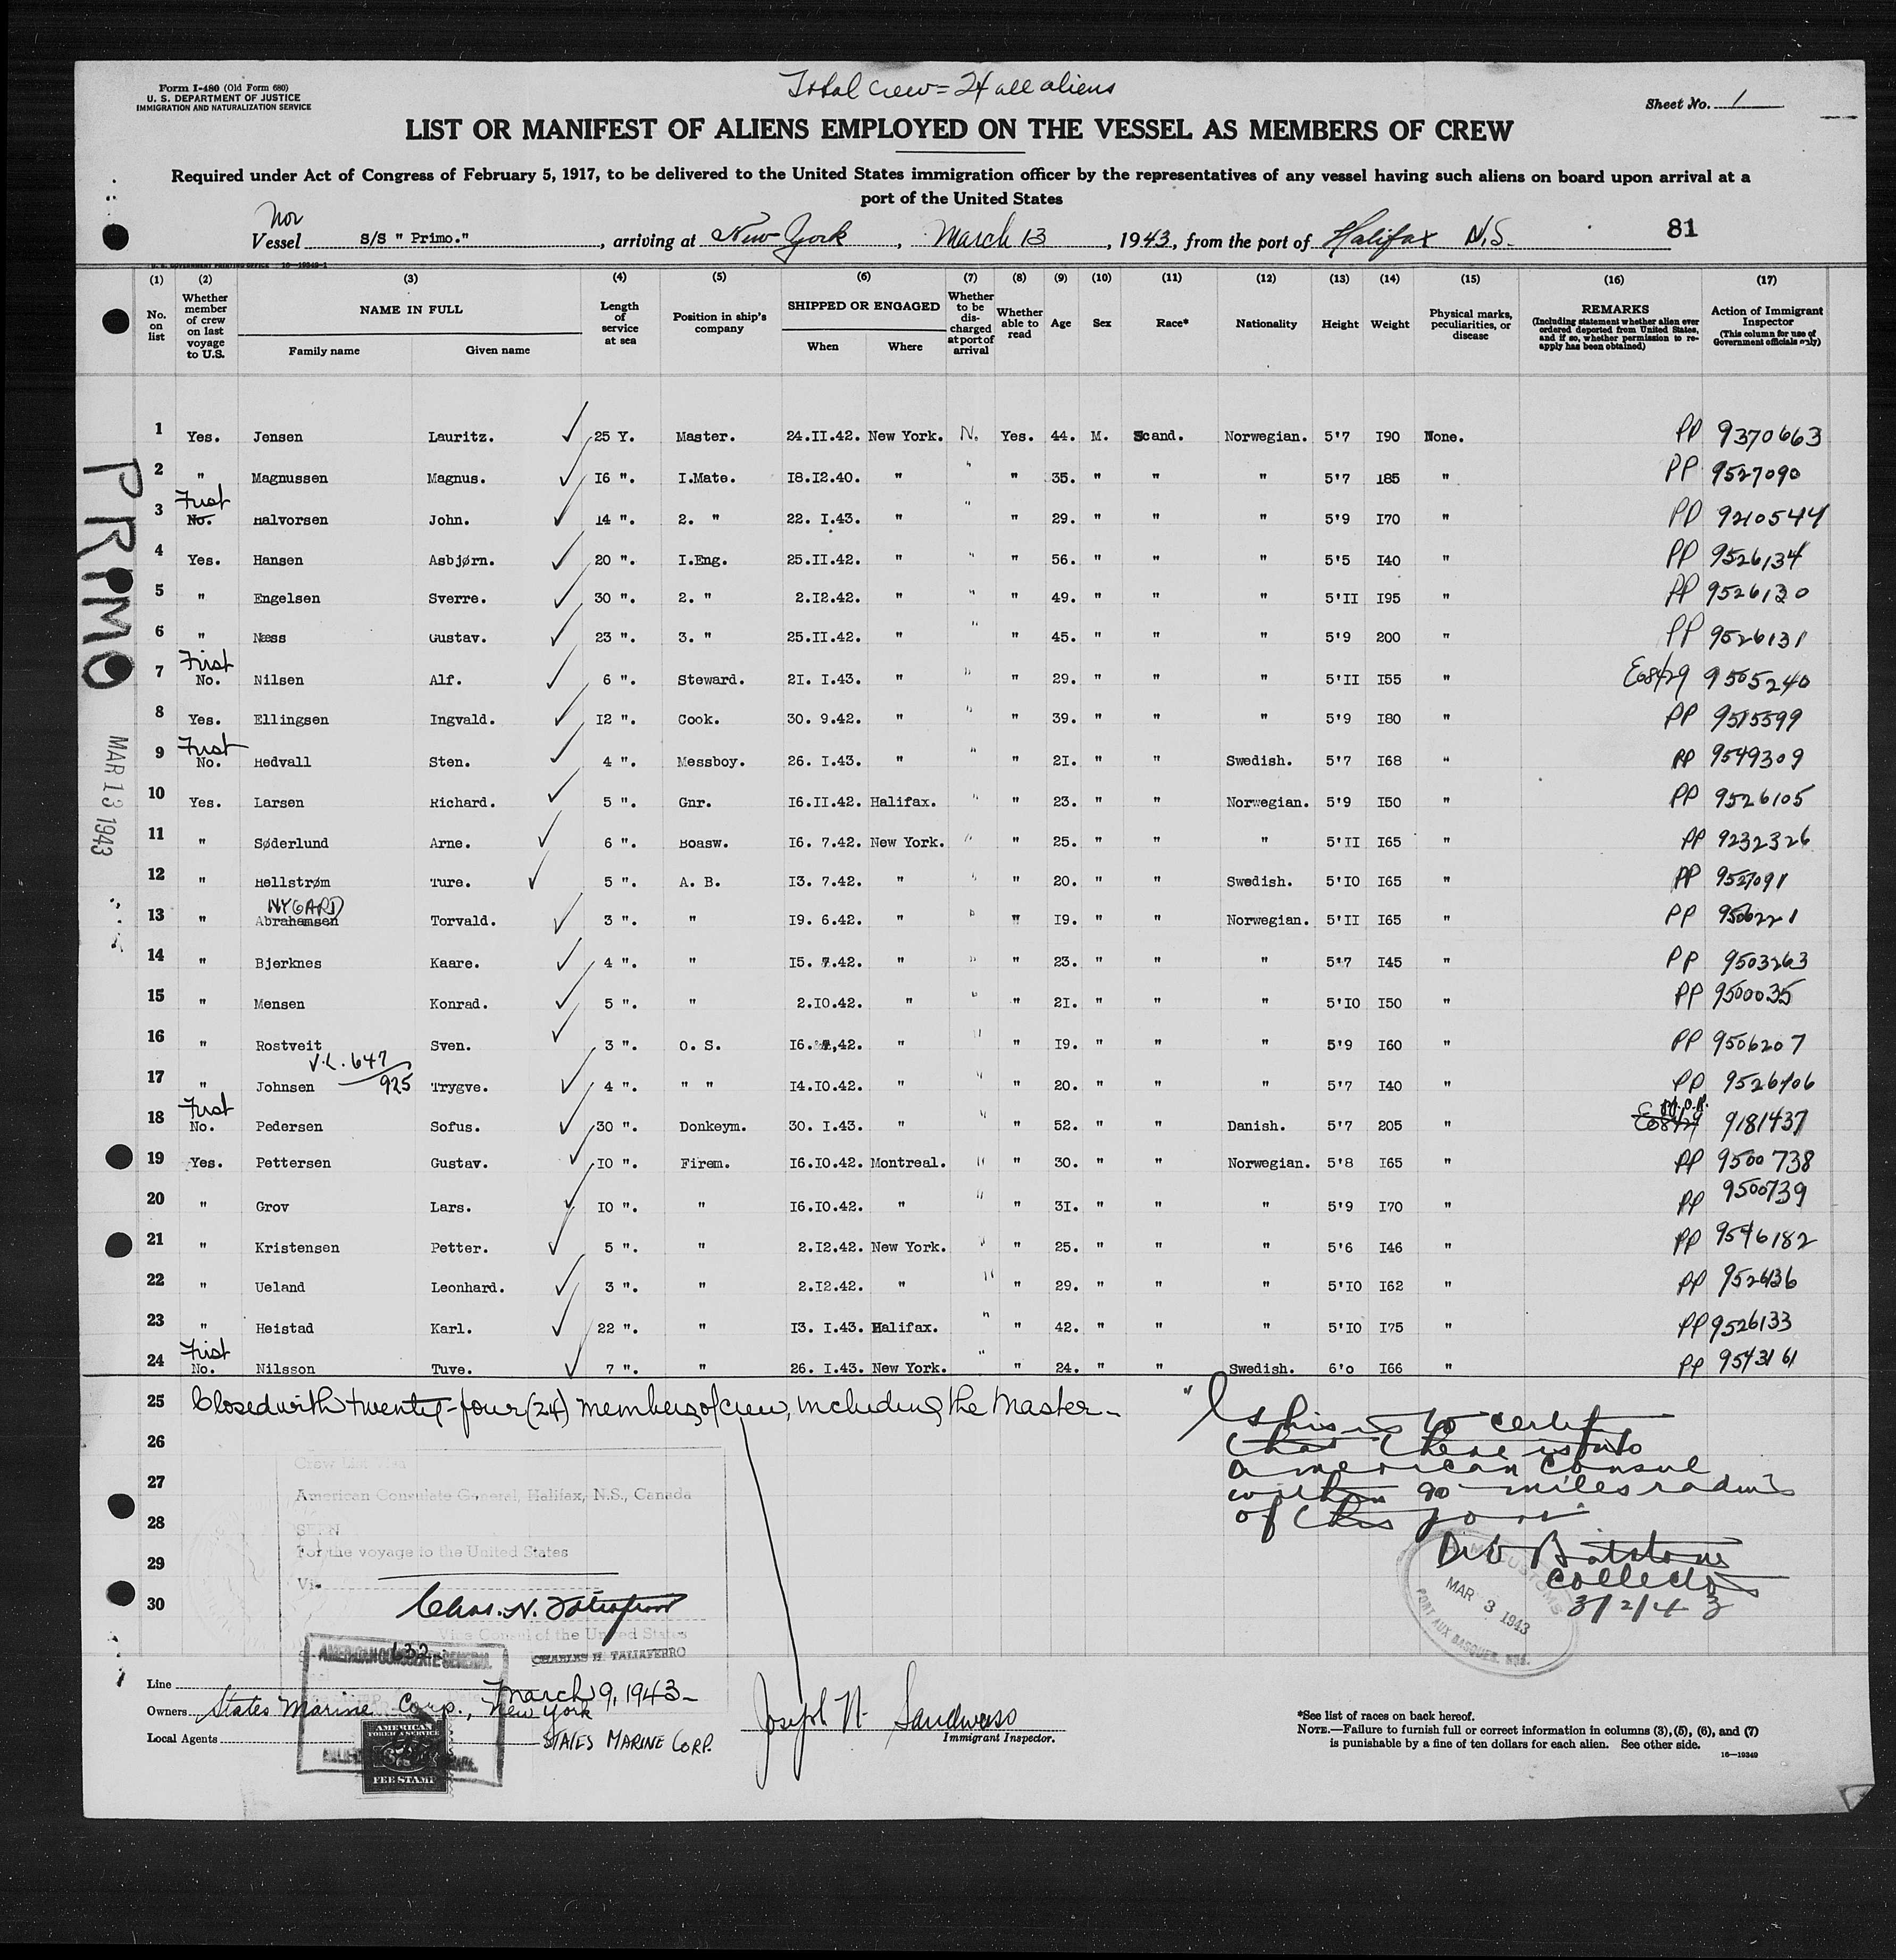 Total crew = 24 all aliens
Form I-480 (Old Form 680)
U. S. DEPARTMENT OF JUSTICE
IMMIGRATION AND NATURALIZATION SERVICE
Sheet No. 1
LIST OR MANIFEST OF ALIENS EMPLOYED ON THE VESSEL AS MEMBERS OF CREW
Required under Act of Congress of February 5, 1917, to be delivered to the United States immigration officer by the representatives of any vessel having such aliens on board upon arrival at a
port of the United States
Nor
Vessel S/S " Primo.", arriving at New York, March 13, 1943, from the port of Halifax N.S. 81
(1) (2) (3) (4) (5) (6) (7) (8) (9) (10) (11) (12) (13) (14) (15) (16) (17)
No. on list
Whether member of crew on last voyage to U.S.
NAME IN FULL
Family name Given name
Length of service at sea
Position in ship's company
SHIPPED OR ENGAGED
When Where
Whether to be discharged at port of arrival
Whether able to read
Age
Sex
Race*
Nationality
Height
Weight
Physical marks, peculiarities, or disease
REMARKS
(Including statement whether alien ever ordered deported from United States, and if so, whether permission to reapply has been obtained)
Action of Immigrant Inspector
(This column for use of Government officials only)
1 Yes. Jensen Lauritz. 25 Y. Master. 24.II.42. New York. N. Yes. 44. M. Scand. Norwegian. 5'7 I90 None. PP 9370663
2 " Magnussen Magnus. I6 ". I.Mate. I8.I2.40. " " " 35. " " " 5'7 I85 " PP 9527090
3 First No. Halvorsen John. I4 ". 2. " 22. I.43. " " " 29. " " " 5'9 I70 " PP 9210544
4 Yes. Hansen Asbjørn. 20 ". I.Eng. 25.II.42. " " " 56. " " " 5'5 I40 " PP 9526134
5 " Engelsen Sverre. 30 ". 2. " 2.I2.42. " " " 49. " " " 5'II I95 " PP 9526130
6 " Næss Gustav. 23 ". 3. " 25.II.42. " " " 45. " " " 5'9 200 " PP 9526131
7 First No. Nilsen Alf. 6 ". Steward. 2I. I.43. " " " 29. " " " 5'II I55 " E08429 9505240
8 Yes. Ellingsen Ingvald. I2 ". Cook. 30. 9.42. " " " 39. " " " 5'9 I80 " PP 9515599
9 First No. Hedvall Sten. 4 ". Messboy. 26. I.43. " " " 2I. " " Swedish. 5'7 I68 " PP 9549309
10 Yes. Larsen Richard. 5 ". Gnr. I6.II.42. Halifax. " " 23. " " Norwegian. 5'9 I50 " PP 9526105
11 " Søderlund Arne. 6 ". Boasw. I6. 7.42. New York. " " 25. " " " 5'II I65 " PP 9232326
12 " Hellstrøm Ture. 5 ". A. B. I3. 7.42. " " 20. " " Swedish. 5'I0 I65 " PP 9527091
NYGARD
13 " Abrahamsen Torvald. 3 ". " I9. 6.42. " " " I9. " " Norwegian. 5'II I65 " PP 9506221
14 " Bjerknes Kaare. 4 ". " I5. 7.42. " " " 23. " " " 5'7 I45 " PP 9503263
15 " Mensen Konrad. 5 ". " 2.I0.42. " " " 2I. " " " 5'I0 I50 " PP 9500035
16 " Rostveit Sven. 3 ". O. S. I6. 7,42. " " " I9. " " " 5'9 I60 " PP 9506207
V.L. 647/925
17 " Johnsen Trygve. 4 ". " " I4.I0.42. " " " 20. " " " 5'7 I40 " PP 9526106
18 First No. Pedersen Sofus. 30 ". Donkeym. 30. I.43. " " " 52. " " Danish. 5'7 205 " 9181437
19 Yes. Pettersen Gustav. I0 ". Firem. I6.I0.42. Montreal. " " 30. " " Norwegian. 5'8 I65 " PP 9500738
20 " Grov Lars. I0 ". " I6.I0.42. " " " 3I. " " " 5'9 I70 " PP 9500739
21 " Kristensen Petter. 5 ". " 2.I2.42. New York. " " 25. " " " 5'6 I46 " PP 9546182
22 " Ueland Leonhard. 3 ". " 2.I2.42. " " " 29. " " " 5'I0 I62 " PP 9526136
23 " Heistad Karl. 22 ". " I3. I.43. Halifax. " " 42. " " " 5'I0 I75 " PP 9526133
24 First No. Nilsson Tuve. 7 ". " 26. I.43. New York. " " 24. " " Swedish. 6'0 I66 " PP 9543161
25 Closed with twenty-four (24) members of crew, including the Master
26
27
28
29
30
PRIMO
MAR 13 1943
"This is to certify
that there is no
American Consul
within 90 miles radius
of this port
Collector
3/2/43
CUSTOMS
MAR 3 1943
PORT AUX BASQUES, NFD.
Crew List Visa
American Consulate General, Halifax, N.S., Canada
SEEN
For the voyage to the United States
Via
Chas. N. Taliaferro
Vice Consul of the United States
CHARLES N. TALIAFERRO
AMERICAN CONSULATE GENERAL
632
March 9, 1943
AMERICAN
FOREIGN SERVICE
FEE STAMP
Line
Owners States Marine Corp., New York
Local Agents STATES MARINE CORP.
Joseph N.
Immigrant Inspector.
*See list of races on back hereof.
NOTE.—Failure to furnish full or correct information in columns (3), (5), (6), and (7)
is punishable by a fine of ten dollars for each alien. See other side.
16—19349